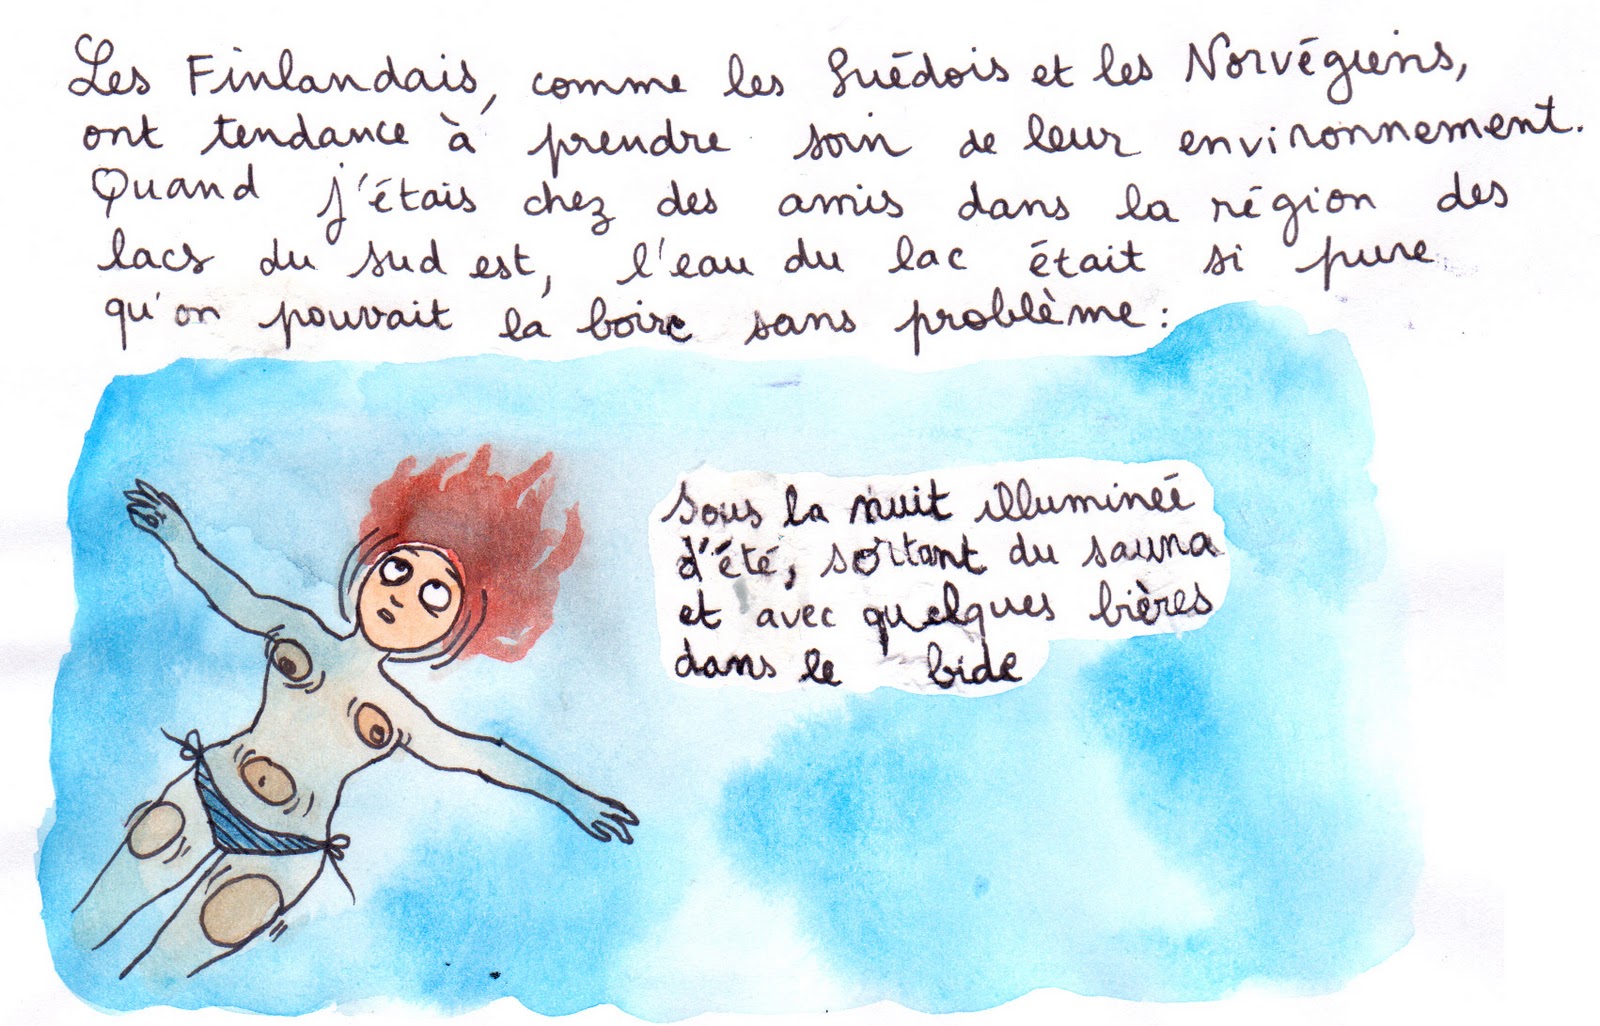 Les Finlandais, comme les Suédois et les Norvégiens,
ont tendance à prendre soin de leur environnement.
Quand j'étais chez des amis dans la région des
lacs du sud est, l'eau du lac était si pure
qu'on pouvait la boire sans problème :
Sous la nuit illuminée
d'été, sortant du sauna
et avec quelques bières
dans le bide